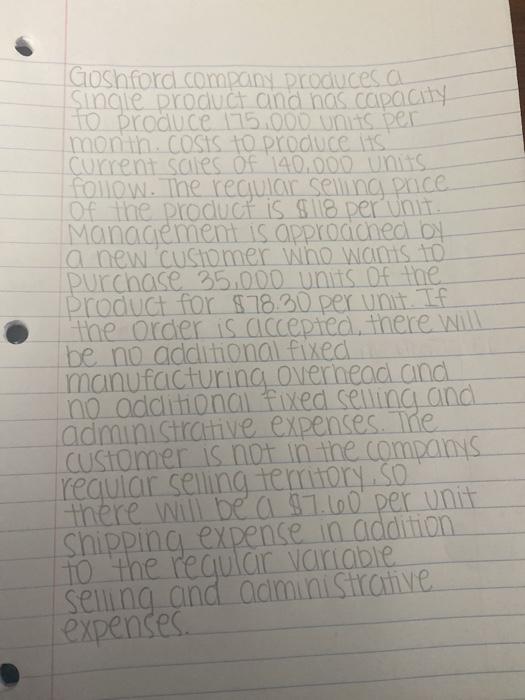 Goshford company produces a
single product and has capacity
to produce 175,000 units per
month. costs to produce its
current sales of 140,000 units
follow. The regular selling price
of the product is $118 per unit.
Management is approached by
a new customer who wants to
purchase 35,000 units of the
product for $78.30 per unit. If
the order is accepted, there will
be no additional fixed
manufacturing overhead and
no additional fixed selling and
administrative expenses. The
customer is not in the companys
regular selling territory, so
there will be a $7.60 per unit
shipping expense in addition
to the regular variable
selling and administrative
expenses.